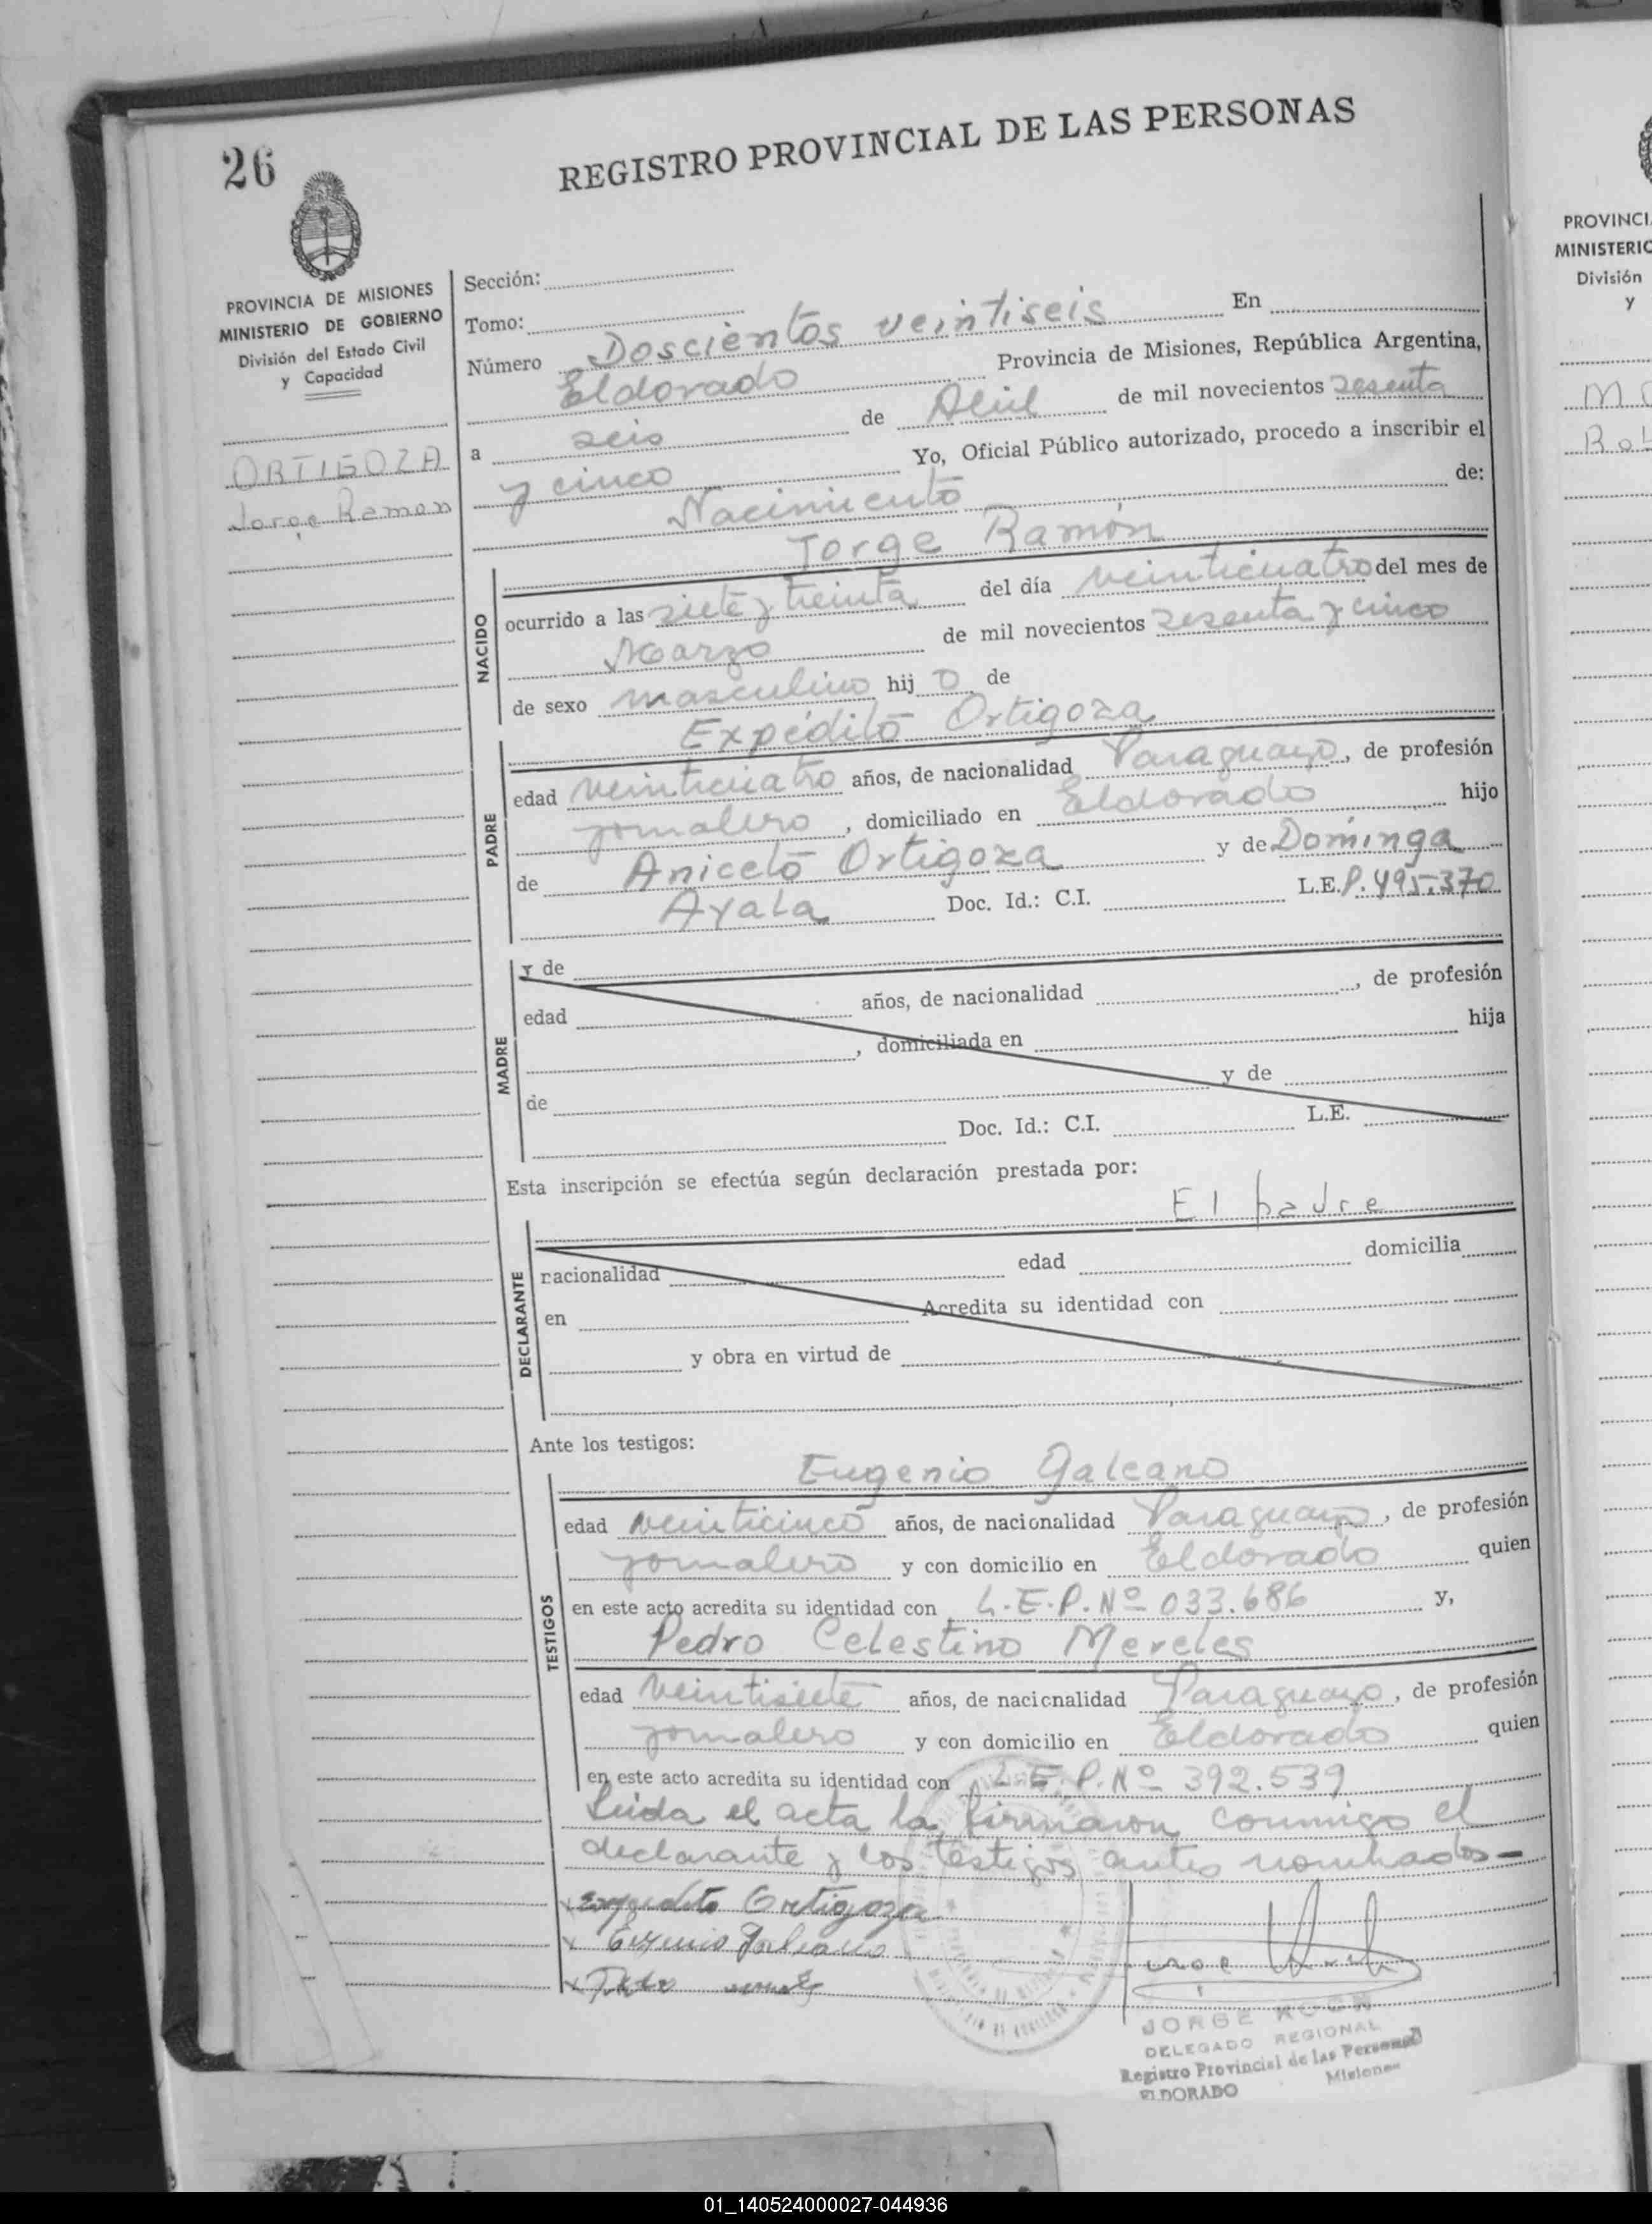 26
REGISTRO PROVINCIAL DE LAS PERSONAS
PROVINCIA DE MISIONES
MINISTERIO DE GOBIERNO
División del Estado Civil
y Capacidad
ORTIGOZA
Jorge Ramon
Sección:
Tomo:
Número Doscientos veintiseis En
Eldorado Provincia de Misiones, República Argentina,
a seis de Abril de mil novecientos sesenta
y cinco Yo, Oficial Público autorizado, procedo a inscribir el
Nacimiento de:
Jorge Ramón
NACIDO
ocurrido a las siete y treinta del día veinticuatro del mes de
Marzo de mil novecientos sesenta y cinco
de sexo masculino hij o de
Expédito Ortigoza
PADRE
edad veinticuatro años, de nacionalidad Paraguayo, de profesión
jornalero, domiciliado en Eldorado hijo
de Aniceto Ortigoza y de Dominga
Ayala Doc. Id.: C.I. L.E. P. 495.370
MADRE
y de
edad años, de nacionalidad , de profesión
, domiciliada en hija
de y de
Doc. Id.: C.I. L.E.
Esta inscripción se efectúa según declaración prestada por:
El padre
DECLARANTE
nacionalidad edad domicilia
en Acredita su identidad con
y obra en virtud de
Ante los testigos:
Eugenio Galeano
TESTIGOS
edad veinticinco años, de nacionalidad Paraguayo, de profesión
jornalero y con domicilio en Eldorado quien
en este acto acredita su identidad con L.E.P. Nº 033.686 y,
Pedro Celestino Mereles
edad veintisiete años, de nacionalidad Paraguayo, de profesión
jornalero y con domicilio en Eldorado quien
en este acto acredita su identidad con L.E.P. Nº 392.539
Leida el acta la firmaron conmigo el
declarante y los testigos antes nombrados-
x Expedito Ortigoza
x Eugenio Galeano
x
JORGE KOCH
DELEGADO REGIONAL
Registro Provincial de las Personas
ELDORADO Misiones
PROVINCI
MINISTERIO
División
y
01_140524000027-044936